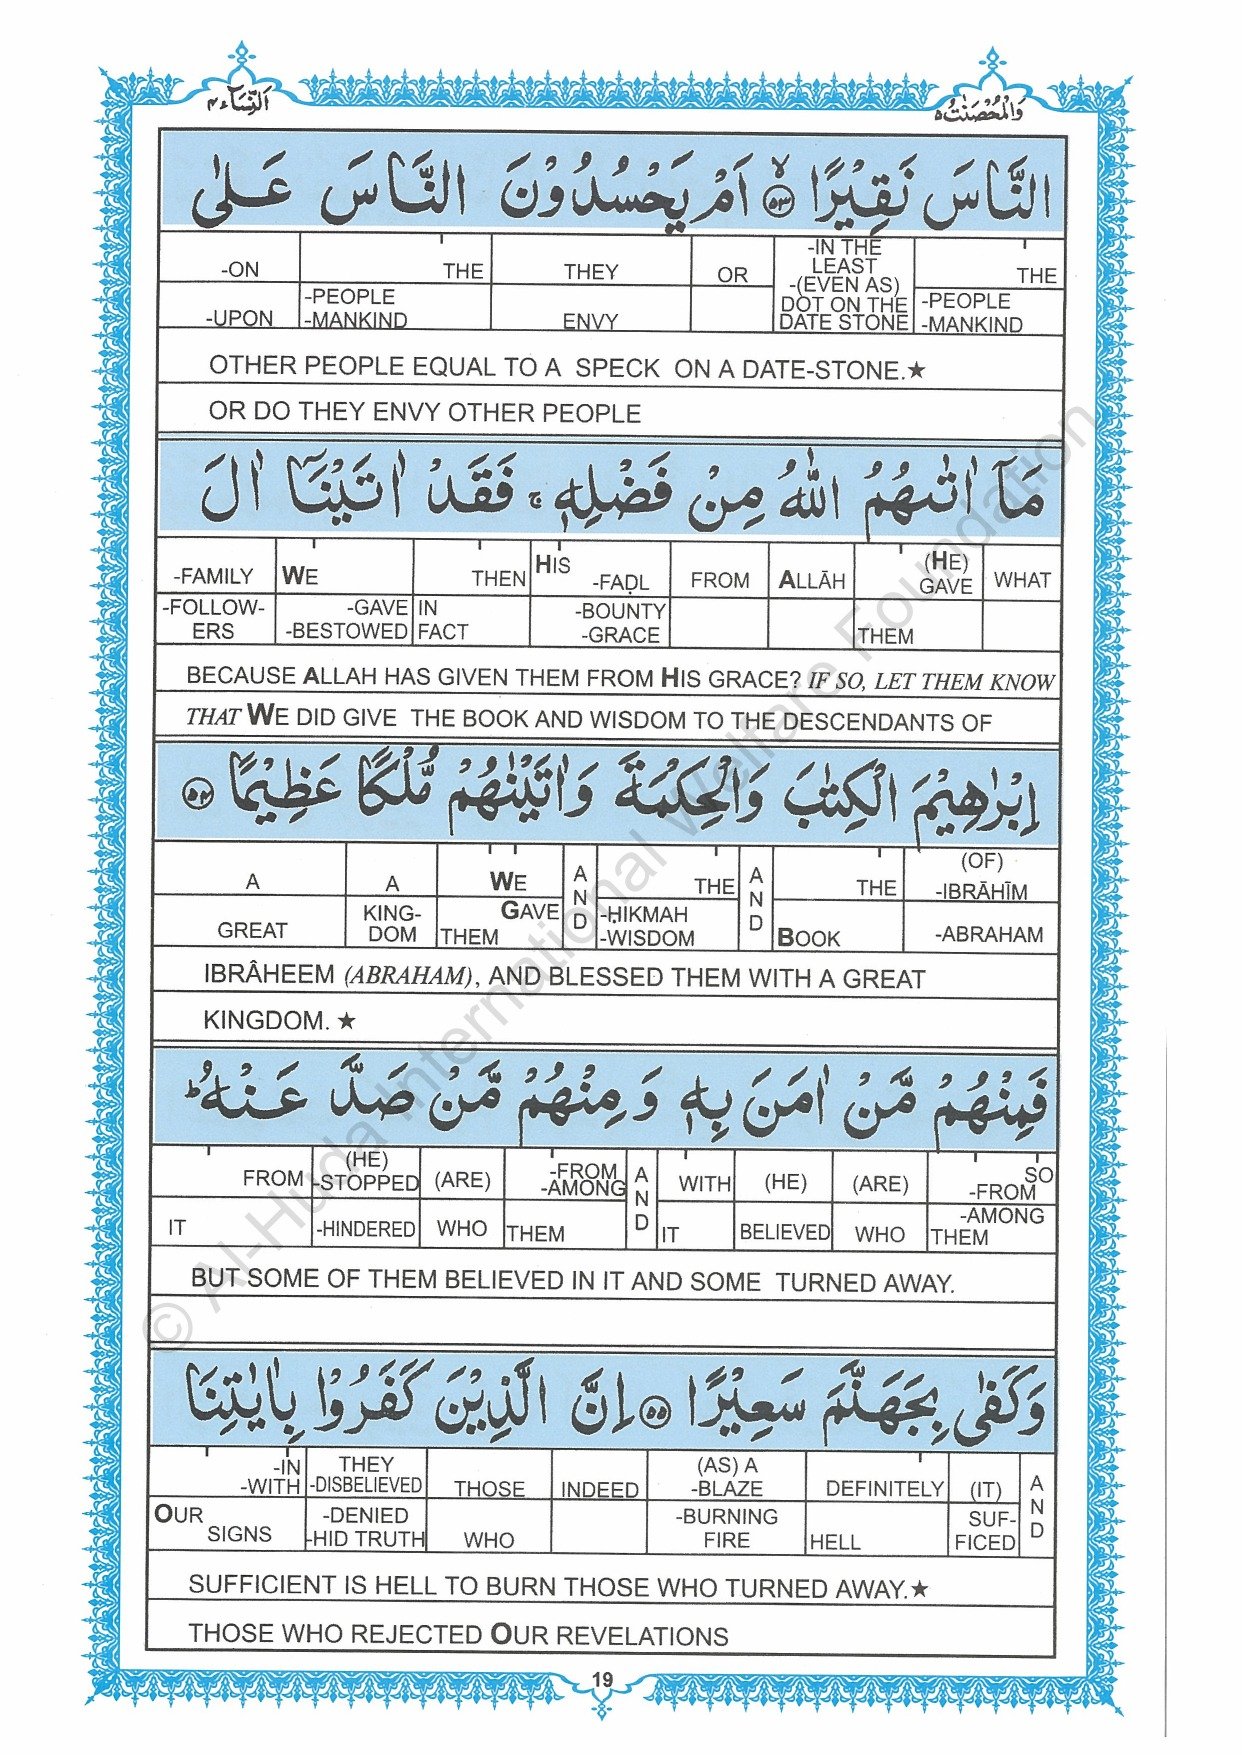 وَالْمُحْصَنٰتُ ٥
اَلنِّسَآء ٤
النَّاسَ نَقِيْرًا ۙ ﴿٥٣﴾ اَمْ يَحْسُدُوْنَ النَّاسَ عَلٰى
-ON THE THEY OR -IN THE LEAST -(EVEN AS) DOT ON THE DATE STONE THE
-UPON -PEOPLE -MANKIND ENVY -PEOPLE -MANKIND
OTHER PEOPLE EQUAL TO A SPECK ON A DATE-STONE.★
OR DO THEY ENVY OTHER PEOPLE
مَآ اٰتٰىهُمُ اللّٰهُ مِنْ فَضْلِهٖ ۚ فَقَدْ اٰتَيْنَآ اٰلَ
-FAMILY WE THEN HIS -FAḌL FROM ALLĀH (HE) GAVE WHAT
-FOLLOW-ERS -GAVE -BESTOWED IN FACT -BOUNTY -GRACE THEM
BECAUSE ALLAH HAS GIVEN THEM FROM HIS GRACE? IF SO, LET THEM KNOW
THAT WE DID GIVE THE BOOK AND WISDOM TO THE DESCENDANTS OF
اِبْرٰهِيْمَ الْكِتٰبَ وَالْحِكْمَةَ وَاٰتَيْنٰهُمْ مُّلْكًا عَظِيْمًا ﴿٥٤﴾
A A WE AND THE AND THE (OF) -IBRĀHĪM
GREAT KING-DOM GAVE THEM -ḤIKMAH -WISDOM BOOK -ABRAHAM
IBRÂHEEM (ABRAHAM), AND BLESSED THEM WITH A GREAT
KINGDOM. ★
فَمِنْهُمْ مَّنْ اٰمَنَ بِهٖ وَمِنْهُمْ مَّنْ صَدَّ عَنْهُ ؕ
FROM (HE) -STOPPED (ARE) -FROM -AMONG AND WITH (HE) (ARE) SO -FROM
IT -HINDERED WHO THEM IT BELIEVED WHO -AMONG THEM
BUT SOME OF THEM BELIEVED IN IT AND SOME TURNED AWAY.
وَكَفٰى بِجَهَنَّمَ سَعِيْرًا ﴿٥٥﴾ اِنَّ الَّذِيْنَ كَفَرُوْا بِاٰيٰتِنَا
-IN -WITH THEY -DISBELIEVED THOSE INDEED (AS) A -BLAZE DEFINITELY (IT) AND
OUR SIGNS -DENIED -HID TRUTH WHO -BURNING FIRE HELL SUF-FICED
SUFFICIENT IS HELL TO BURN THOSE WHO TURNED AWAY.★
THOSE WHO REJECTED OUR REVELATIONS
19
© Al-Huda International Welfare Foundation